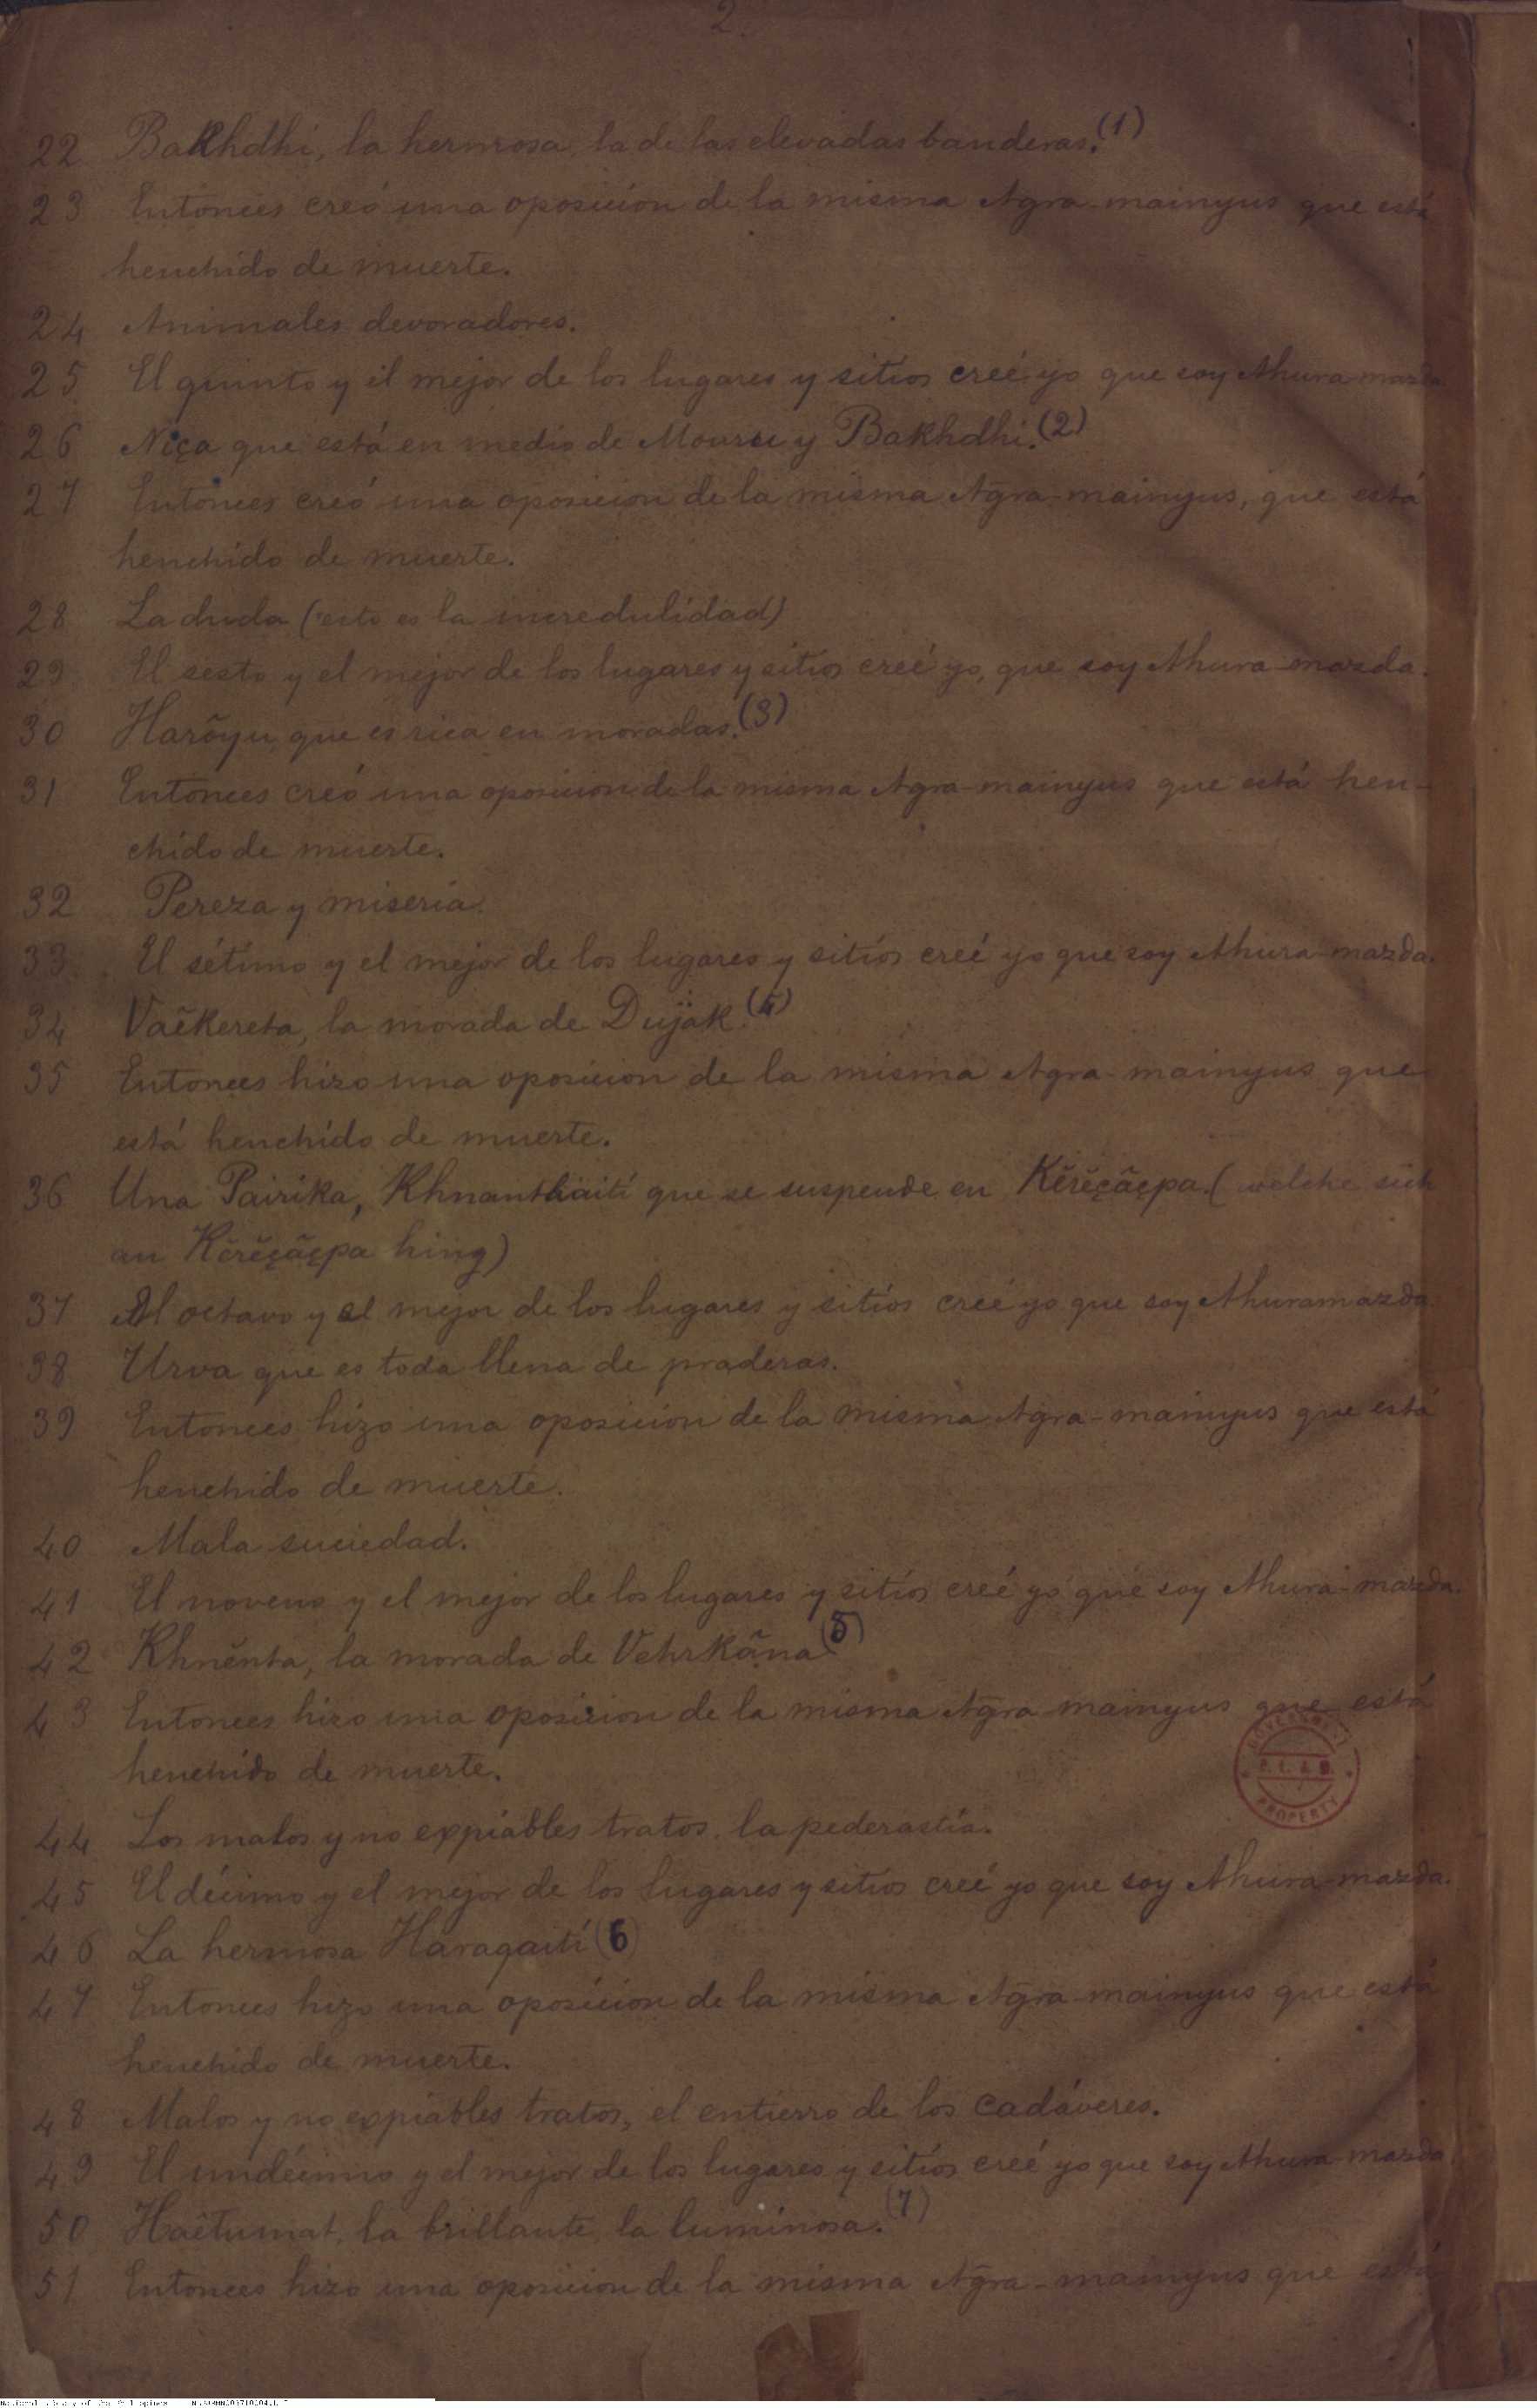 2.
22 Bakhdhi, la hermosa, la de las elevadas banderas.(1)
23 Entonces creó una oposición de la misma Agra-mainyus que está
henchido de muerte.
24 Animales devoradores.
25 El quinto y el mejor de los lugares y sitios creé yo que soy Ahura mazda
26 Niça que está en medio de Mouru y Bakhdhi.(2)
27 Entonces creó una oposicion de la misma Agra-mainyus, que está
henchido de muerte.
28 La duda (esto es la incredulidad)
29 El sesto y el mejor de los lugares y sitios creé yo, que soy Ahura-mazda.
30 Harôyu que es rica en moradas.(3)
31 Entonces creó una oposicion de la misma Agra-mainyus que está hen-
chido de muerte.
32 Pereza y miseria.
33 El sétimo y el mejor de los lugares y sitios creé yo que soy Ahura-mazda.
34 Vaêkereta, la morada de Dujak.(4)
35 Entonces hizo una oposicion de la misma Agra-mainyus que
está henchido de muerte.
36 Una Pairika, Khnanthaiti que se suspende en Kĕrĕçâçpa. (welche sich
an Kĕrĕçâçpa hing)
37 El octavo y el mejor de los lugares y sitios creé yo que soy Ahuramazda
38 Urva que es toda llena de praderas.
39 Entonces hizo una oposicion de la misma Agra-mainyus que está
henchido de muerte.
40 Mala suciedad.
41 El noveno y el mejor de los lugares y sitios creé yo que soy Ahura-mazda.
42 Khnĕnta, la morada de Vehrkâna(5)
43 Entonces hizo una oposicion de la misma Agra mainyus que está
henchido de muerte.
44 Los malos y no expiables tratos, la pederastía.
45 El décimo y el mejor de los lugares y sitios creé yo que soy Ahura-mazda.
46 La hermosa Haraqaiti (6)
47 Entonces hizo una oposicion de la misma Agra-mainyus que está
henchido de muerte.
48 Malos y no expiables tratos, el entierro de los cadáveres.
49 El undécimo y el mejor de los lugares y sitios creé yo que soy Ahura-mazda
50 Haêtumat, la brillante, la luminosa.(7)
51 Entonces hizo una oposicion de la misma Agra-mainyus que está
GOVERNMENT
P. L. & M.
PROPERTY